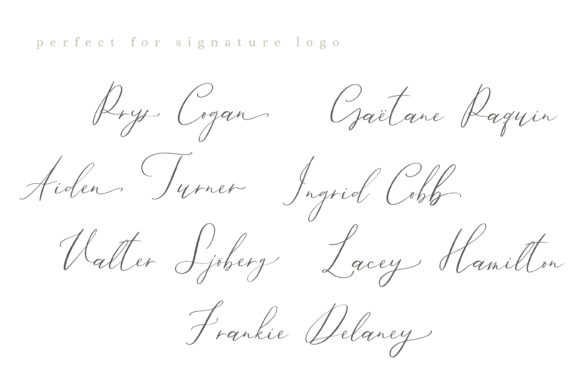 perfect for signature logo
Prys Cogan Gaëtane Paquin
Aiden Turner Ingrid Cobb
Valter Sjöberg Lacey Hamilton
Frankie Delaney